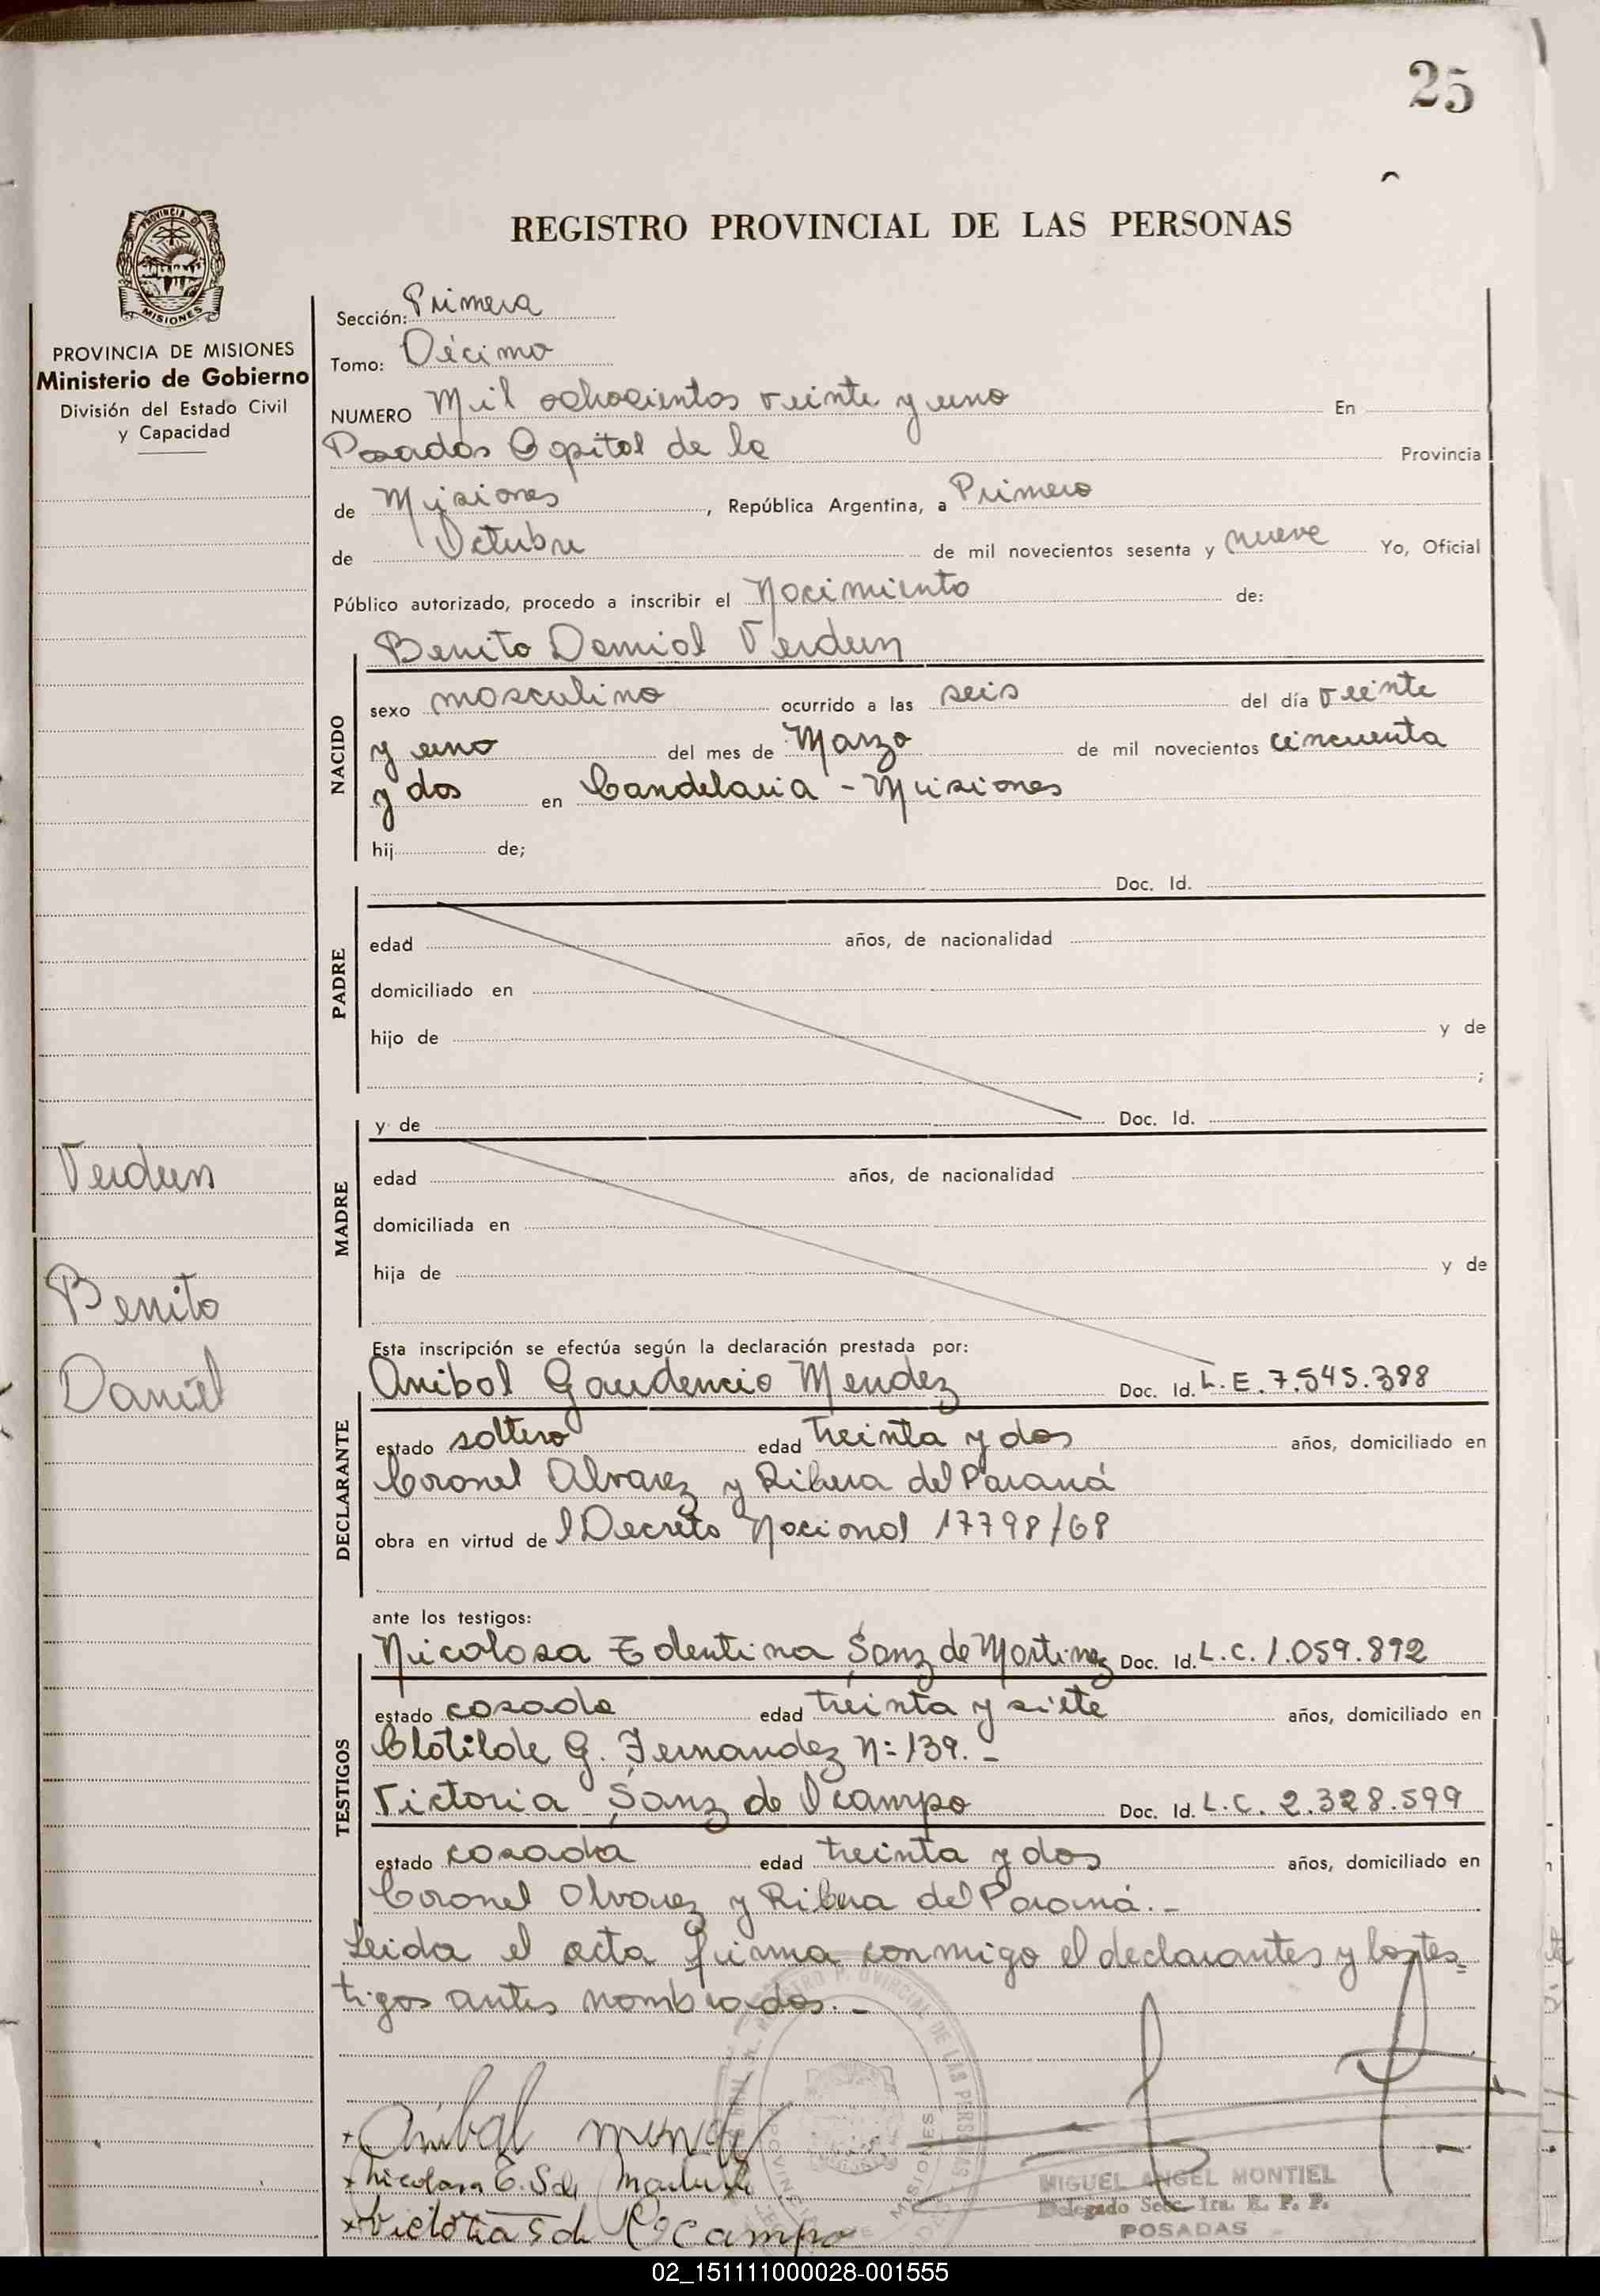 25
REGISTRO PROVINCIAL DE LAS PERSONAS
PROVINCIA DE MISIONES
MISIONES
PROVINCIA DE MISIONES
Ministerio de Gobierno
División del Estado Civil
y Capacidad
Sección: Primera
Tomo: Décimo
NUMERO Mil ochocientos veinte y uno En
Posadas Capital de la Provincia
de Misiones, República Argentina, a Primero
de Octubre de mil novecientos sesenta y nueve Yo, Oficial
Público autorizado, procedo a inscribir el Nacimiento de:
Benito Daniel Verdun
NACIDO
sexo masculino ocurrido a las seis del día veinte
y uno del mes de Marzo de mil novecientos cincuenta
y dos en Candelaria - Misiones
hij de;
PADRE
Doc. Id.
edad años, de nacionalidad
domiciliado en
hijo de y de
;
MADRE
y de Doc. Id.
edad años, de nacionalidad
domiciliada en
hija de y de
Verdun
Benito
Daniel
Esta inscripción se efectúa según la declaración prestada por:
DECLARANTE
Anibal Gaudencio Mendez Doc. Id. L.E. 7.545.388
estado soltero edad treinta y dos años, domiciliado en
Coronel Alvarez y Ribera del Paraná
obra en virtud de l Decreto Nacional 17798/68
ante los testigos:
TESTIGOS
Nicolasa Sanz de Martinez Doc. Id. L.C. 1.059.892
estado casada edad treinta y siete años, domiciliado en
Clotilde G. Fernandez N: 139.-
Victoria Sanz de Ocampo Doc. Id. L.C. 2.328.599
estado casada edad treinta y dos años, domiciliado en
Coronel Alvarez y Ribera del Paraná.-
Leida el acta firma conmigo el declarantes y los tes=
tigos antes nombrados.-
REGISTRO PROVINCIAL DE LAS PERSONAS
MISIONES
x Anibal Mendez
x Nicolasa E. S de
x Victoria S de Ocampo
MIGUEL ANGEL MONTIEL
Delegado Secc. 1ra. R. P. P.
POSADAS
02_151111000028-001555